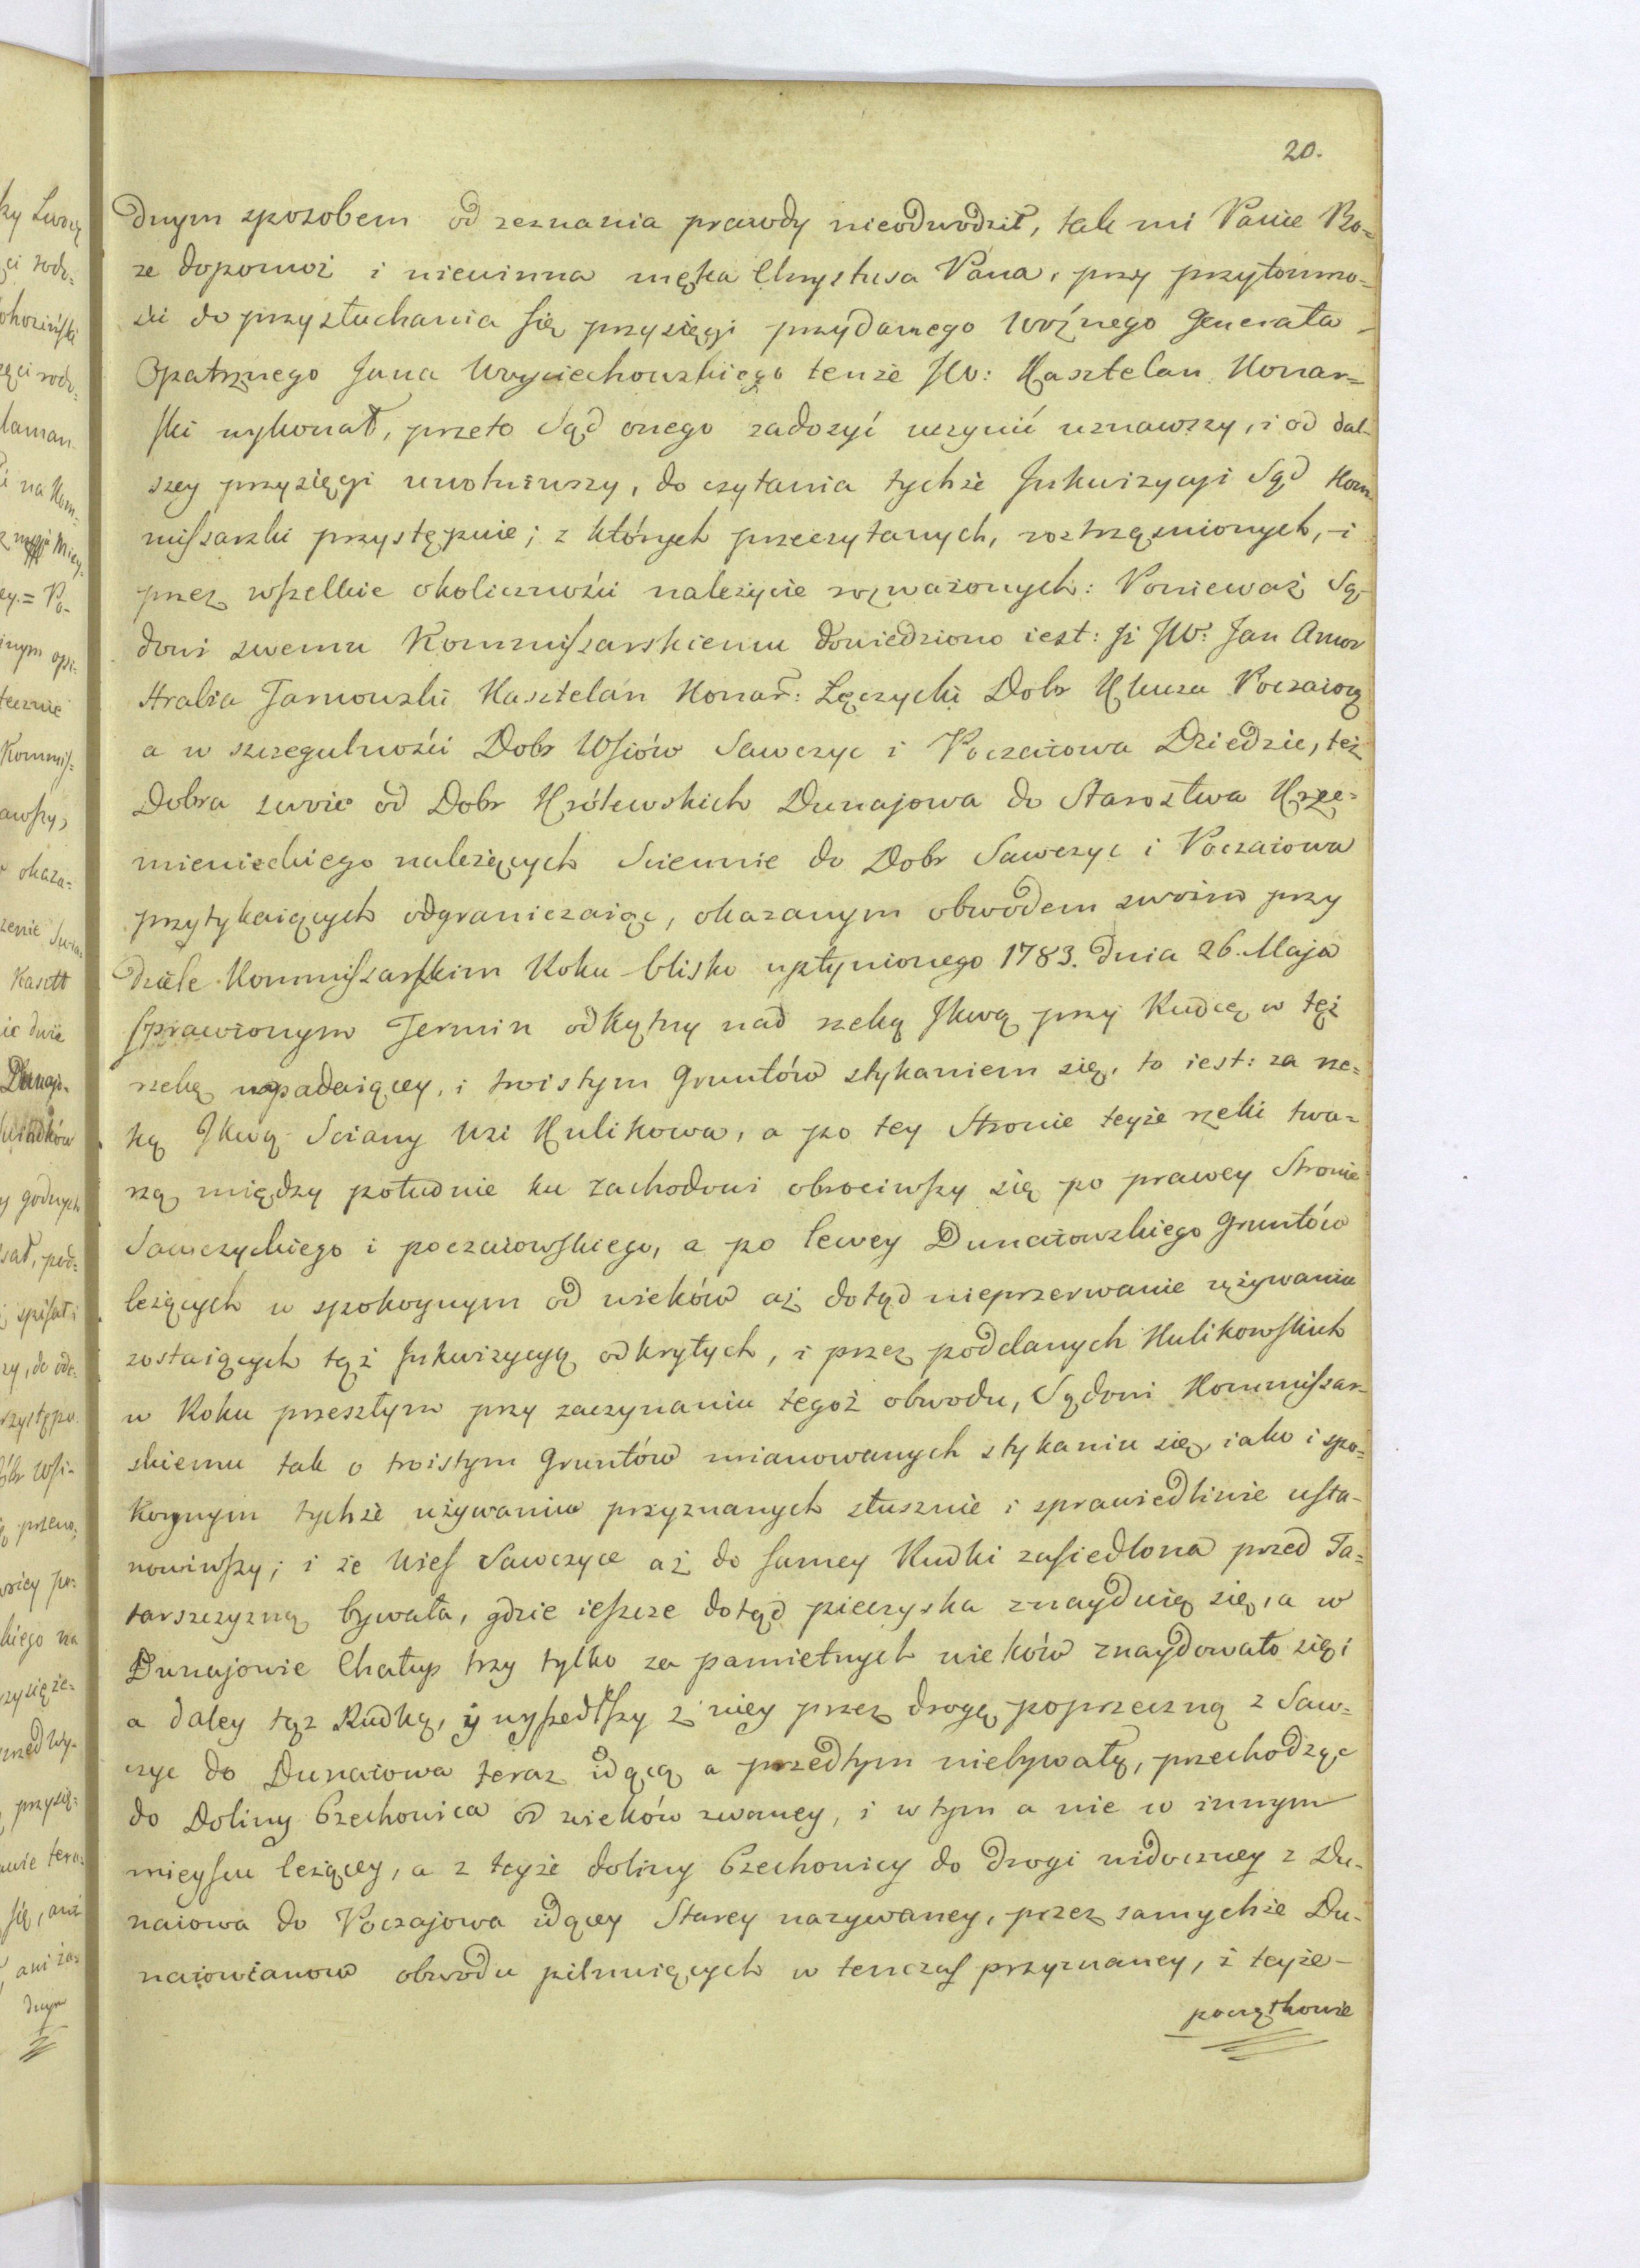 20.
dnym sposobem od zeznania prawdy nieodwodził, tak mi Panie Bo=
że dopomoż i niewinna męka Chrystusa Pana, przy przytomno=
ści do przysłuchania się przysięgi przydanego Woźnego Generała
Opatrznego Jana Woyciechowskiego tenże JW: Kasztelan Konar=
ski wykonał, przeto Sąd onego zadosyć uczynić uznawszy, i od dal-
szey przysięgi uwolniwszy, do czytania tychże Inkwizycyi Sąd Kom-
missarski przystępuie; z których przeczytanych, roztrząsnionych, i
przez wszelkie okoliczności należycie rozważonych: Ponieważ Są-
dowi swemu Kommissarskiemu dowiedziono iest: Jż JW: Jan Amor
Hrabia Tarnowski Kasztelan Konar: Łęczycki Dobr Klucza Poczaiow
a w szczegulności Dobr Wsiów Sawczyc i Poczaiowa Dziedzic, też
Dobra swoie od Dobr Królewskich Dunajowa do Starostwa Krze=
mienieckiego należących Sciennie do Dobr Sawczyc i Poczaiowa
przytykaiących odgraniczaiąc, okazanym obwodem swoim przy
dziele Kommissarskim Roku blisko upłynionego 1783. dnia 26. Maja
sprawionym Termin odkątny nad rzeką Jkwą przy Rudce w też
rzekę wpadaiącey, i troistym Gruntów stykaniem się, to iest: za rze=
ką Jkwą Sciany Wsi Kulikowa, a po tey Stronie teyże rzeki twa=
rzą między południe ku zachodowi obrociwszy się po prawey Stronie
Sawczyckiego i poczaiowskiego, a po lewey Dunaiowskiego Gruntów
leżących w spokoynym od wieków aż dotąd nieprzerwanie używaniu
zostaiących tąż Jnkwizycyą odkrytych, i przez poddanych Kulikowskich
w Roku przeszłym przy zaczynaniu tegoż obwodu, Sądowi Kommissar-
skiemu tak o troistym Gruntów mianowanych stykaniu się, iako i spo=
koynym tychże używaniu przyznanych słusznie i sprawiedliwie usta-
nowiwszy; i że Wieś Sawczyce aż do samey Rudki zasiedlona przed Ta=
tarszczyzną bywała, gdzie ieszcze dotąd pieczyska znayduią się, a w
Dunajowie Chałup trzy tylko za pamietnych wieków znaydowało się i
a daley tęż Rudkę, y wyszedłszy z niey przez drogę poprzeczną z Saw=
czyc do Dunaiowa teraz idącą a przedtym niebywałę, przechodząc
do Doliny Czechowica od wieków zwaney, i w tym a nie w innym
mieyscu leżącey, a z teyże doliny Czechowicy do drogi widoczney z Du-
naiowa do Poczajowa idącey Starey nazywaney, przez samychże Du-
naiowianow obwodu pilnuiących w tenczas przyznaney, i teyże
początkowie